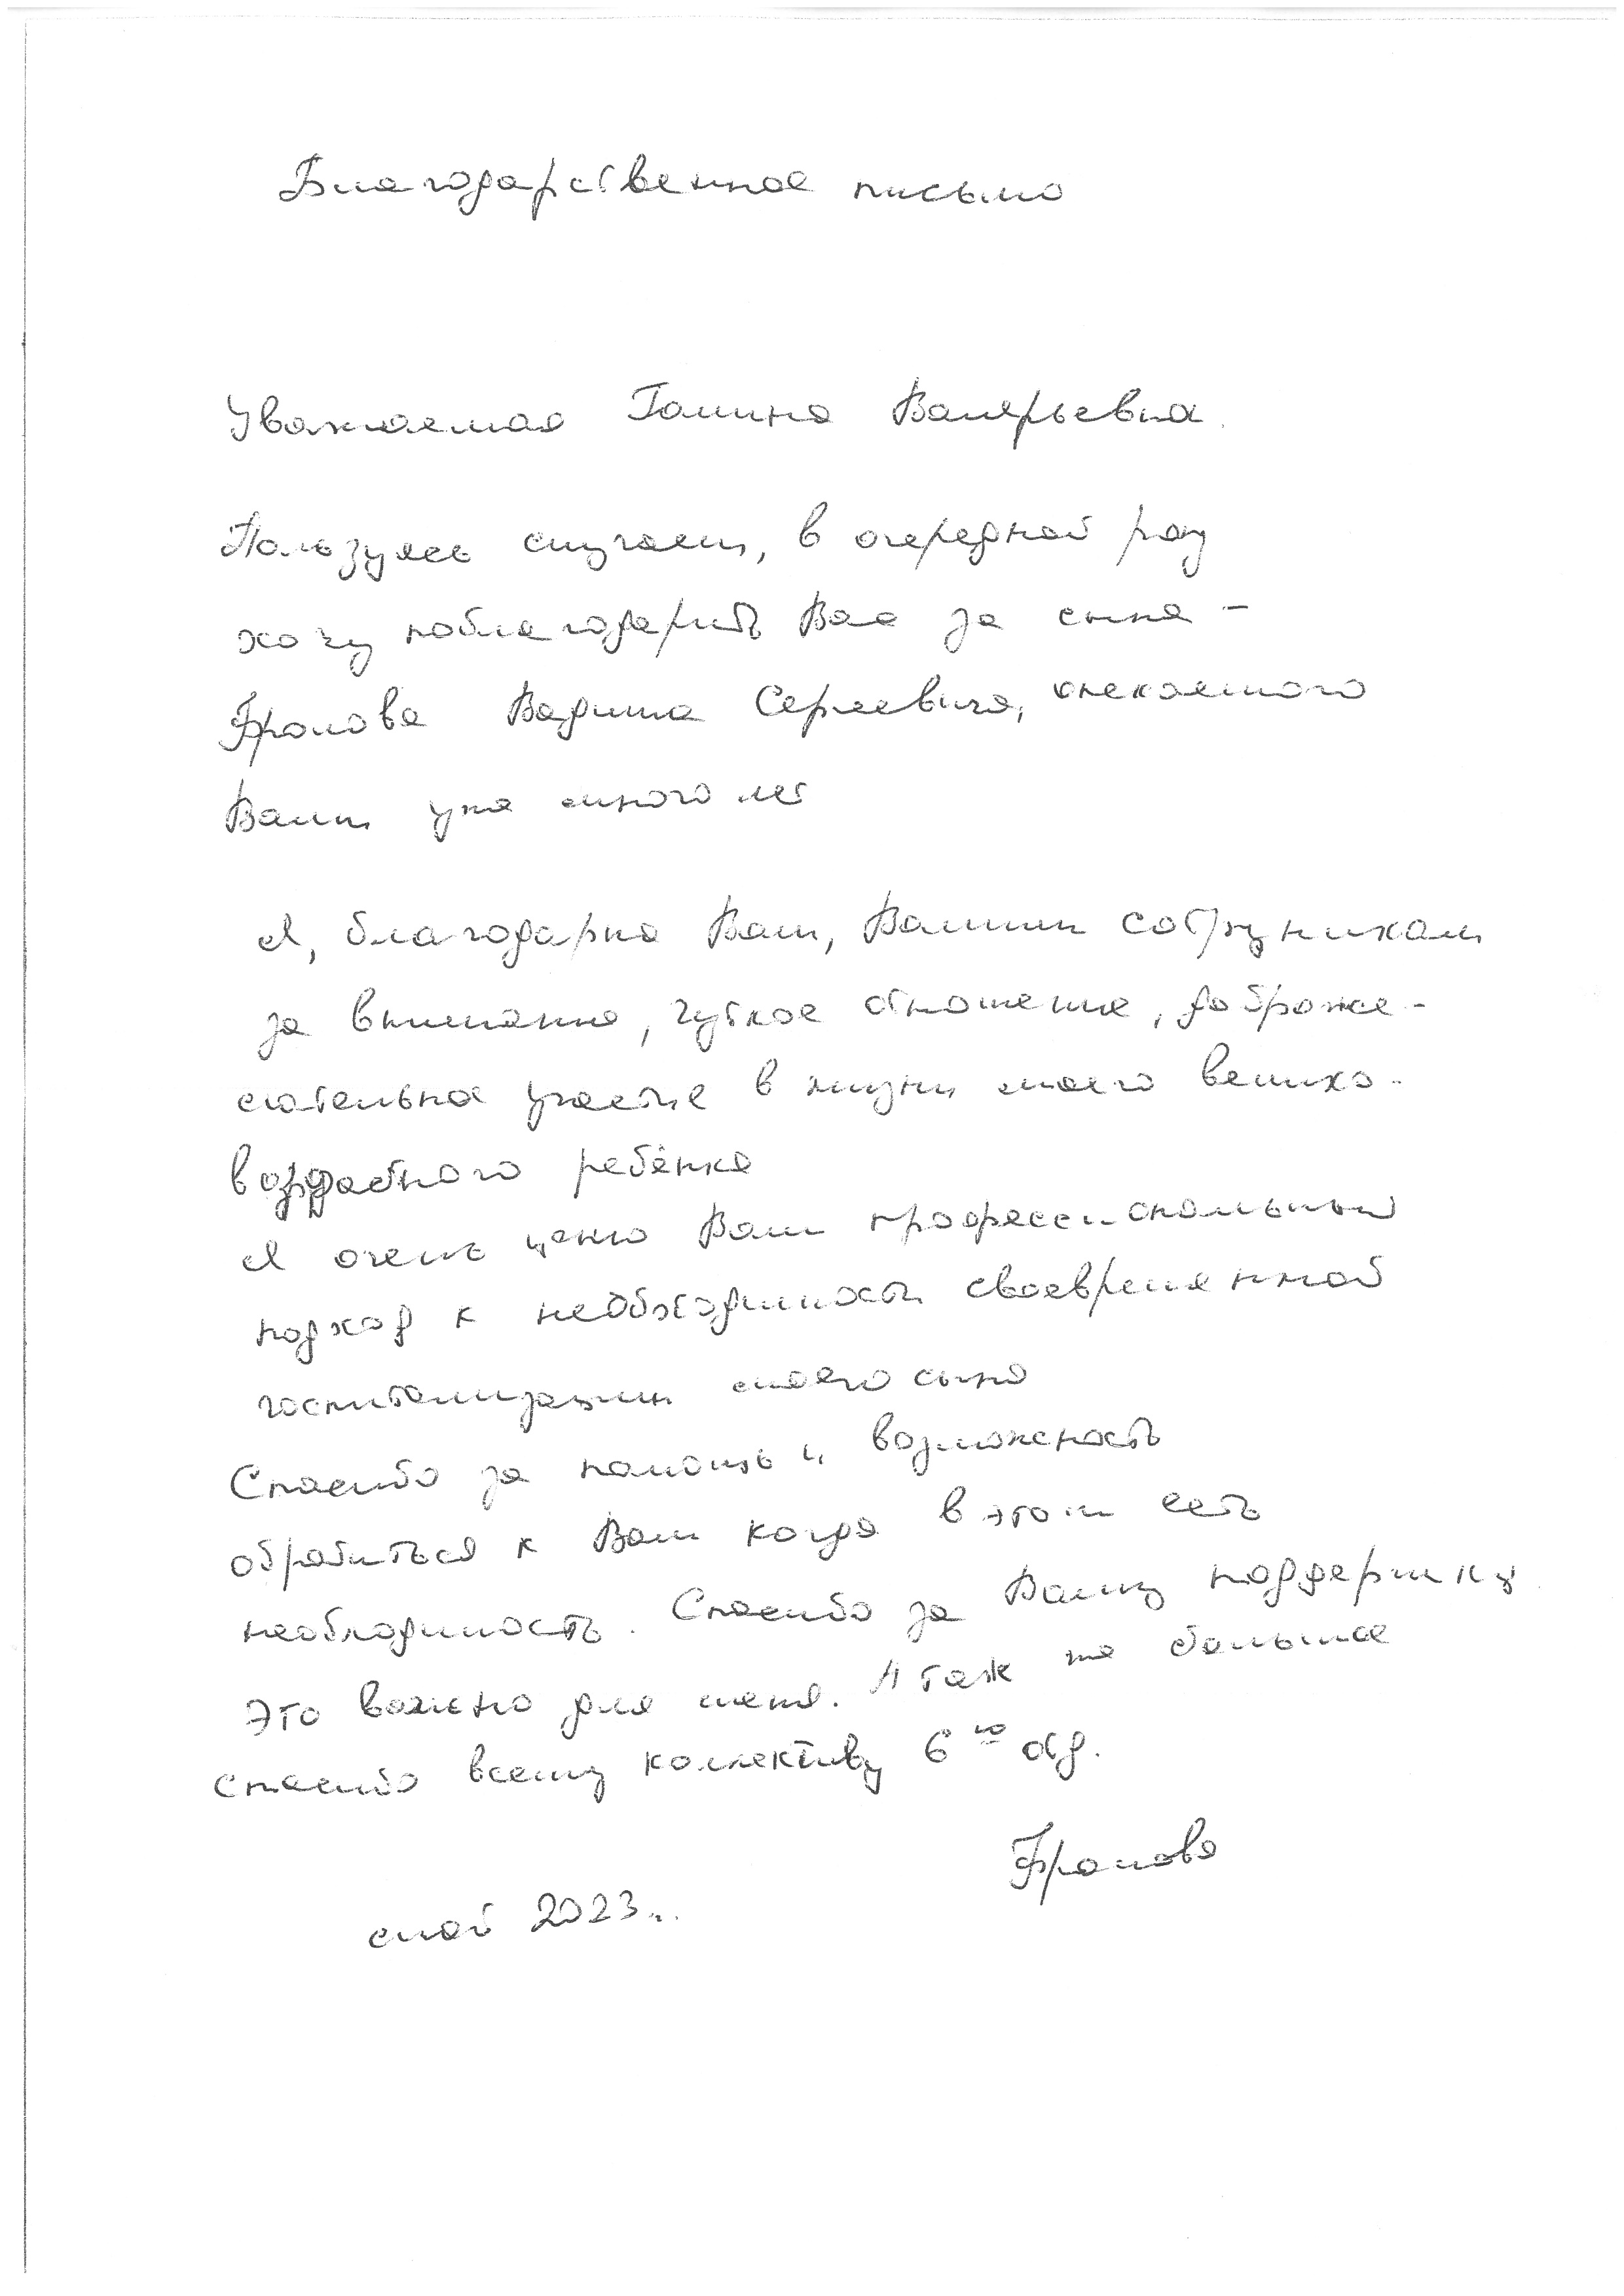 Благодарственное письмо
Уважаемая Галина Валерьевна.
Пользуясь случаем, в очередной раз
хочу поблагодарить Вас за сына -
Фролова Вадима Сергеевича, опекаемого
Вами уже много лет
Я, благодарна Вам, Вашим сотрудникам
за внимание, чуткое отношение, доброже-
лательное участие в жизни моего велико-
возрастного ребёнка
Я очень ценю Ваш профессиональный
подход к необходимости своевременной
госпитализации моего сына
Спасибо за помощь и возможность
обратиться к Вам когда в этом есть
необходимость. Спасибо за Вашу поддержку
Это важно для меня. А так же большое
спасибо всему коллективу 6го отд.
Фролова
май 2023г.